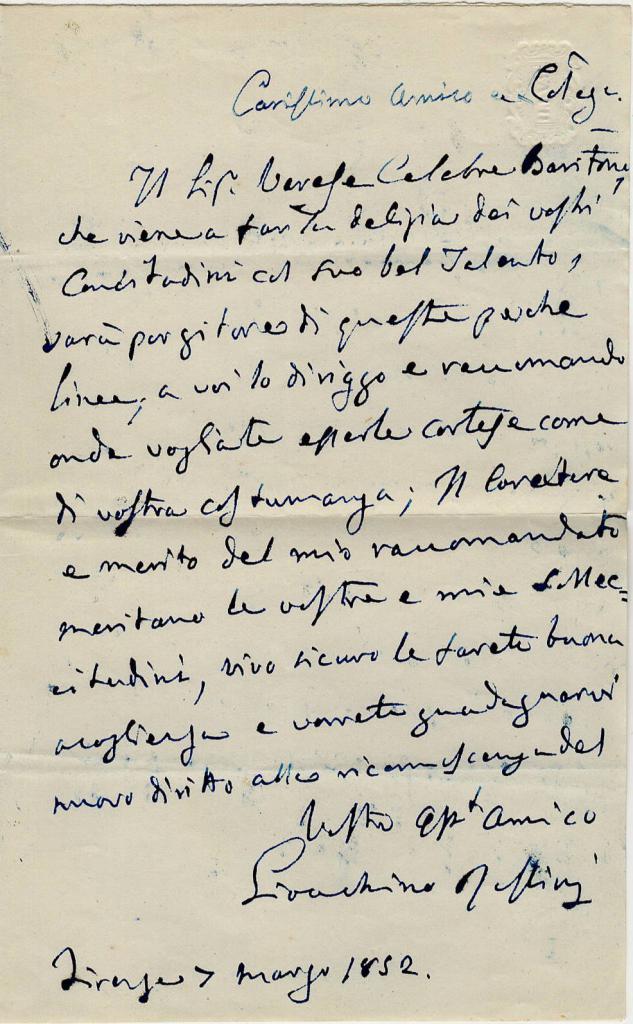 Carissimo Amico e Collega.
Il Sigr. Varese Celebre Baritono,
che viene a far la delizia dei vostri
Concittadini col suo bel Talento,
sarà porgitore di queste poche
linee, a voi lo diriggo e raccomando
onde vogliate essergli cortese come
di vostra costumanza; Il Carattere
e merito del mio raccomandato
meritano le vostre e mie sollec=
citudini, vivo sicuro le farete buona
accoglienza e vorrete guadagnarvi
nuovo diritto alla riconoscenza del
Vostro Afft Amico
Gioachino Rossini
Firenze 7 Marzo 1852.